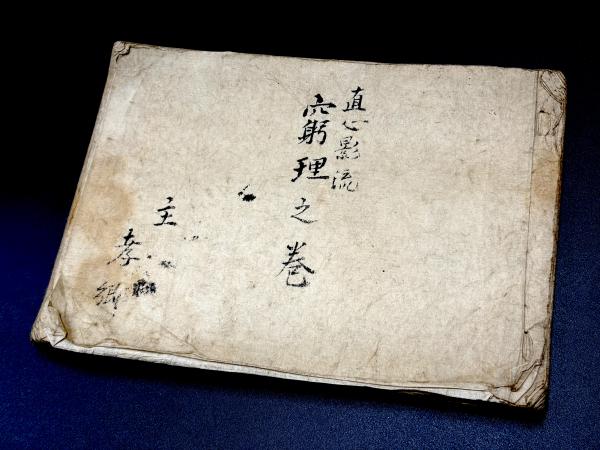 直心影流
窮理之巻
主
孝郷